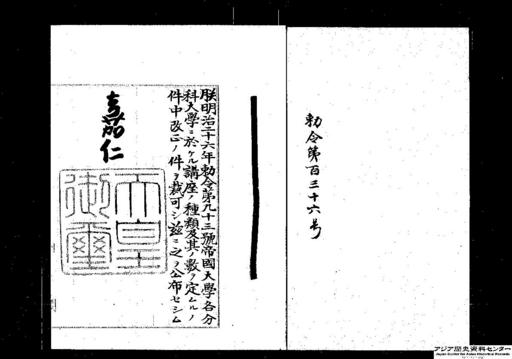 勅令第百三十六号
朕明治二十六年勅令第九十三號帝國大學各分
科大學ニ於ケル講座ノ種類及其ノ數ヲ定ムルノ
件中改正ノ件ヲ裁可シ茲ニ之ヲ公布セシム
嘉仁
天皇
御璽
アジア歴史資料センター
Japan Center for Asian Historical Records